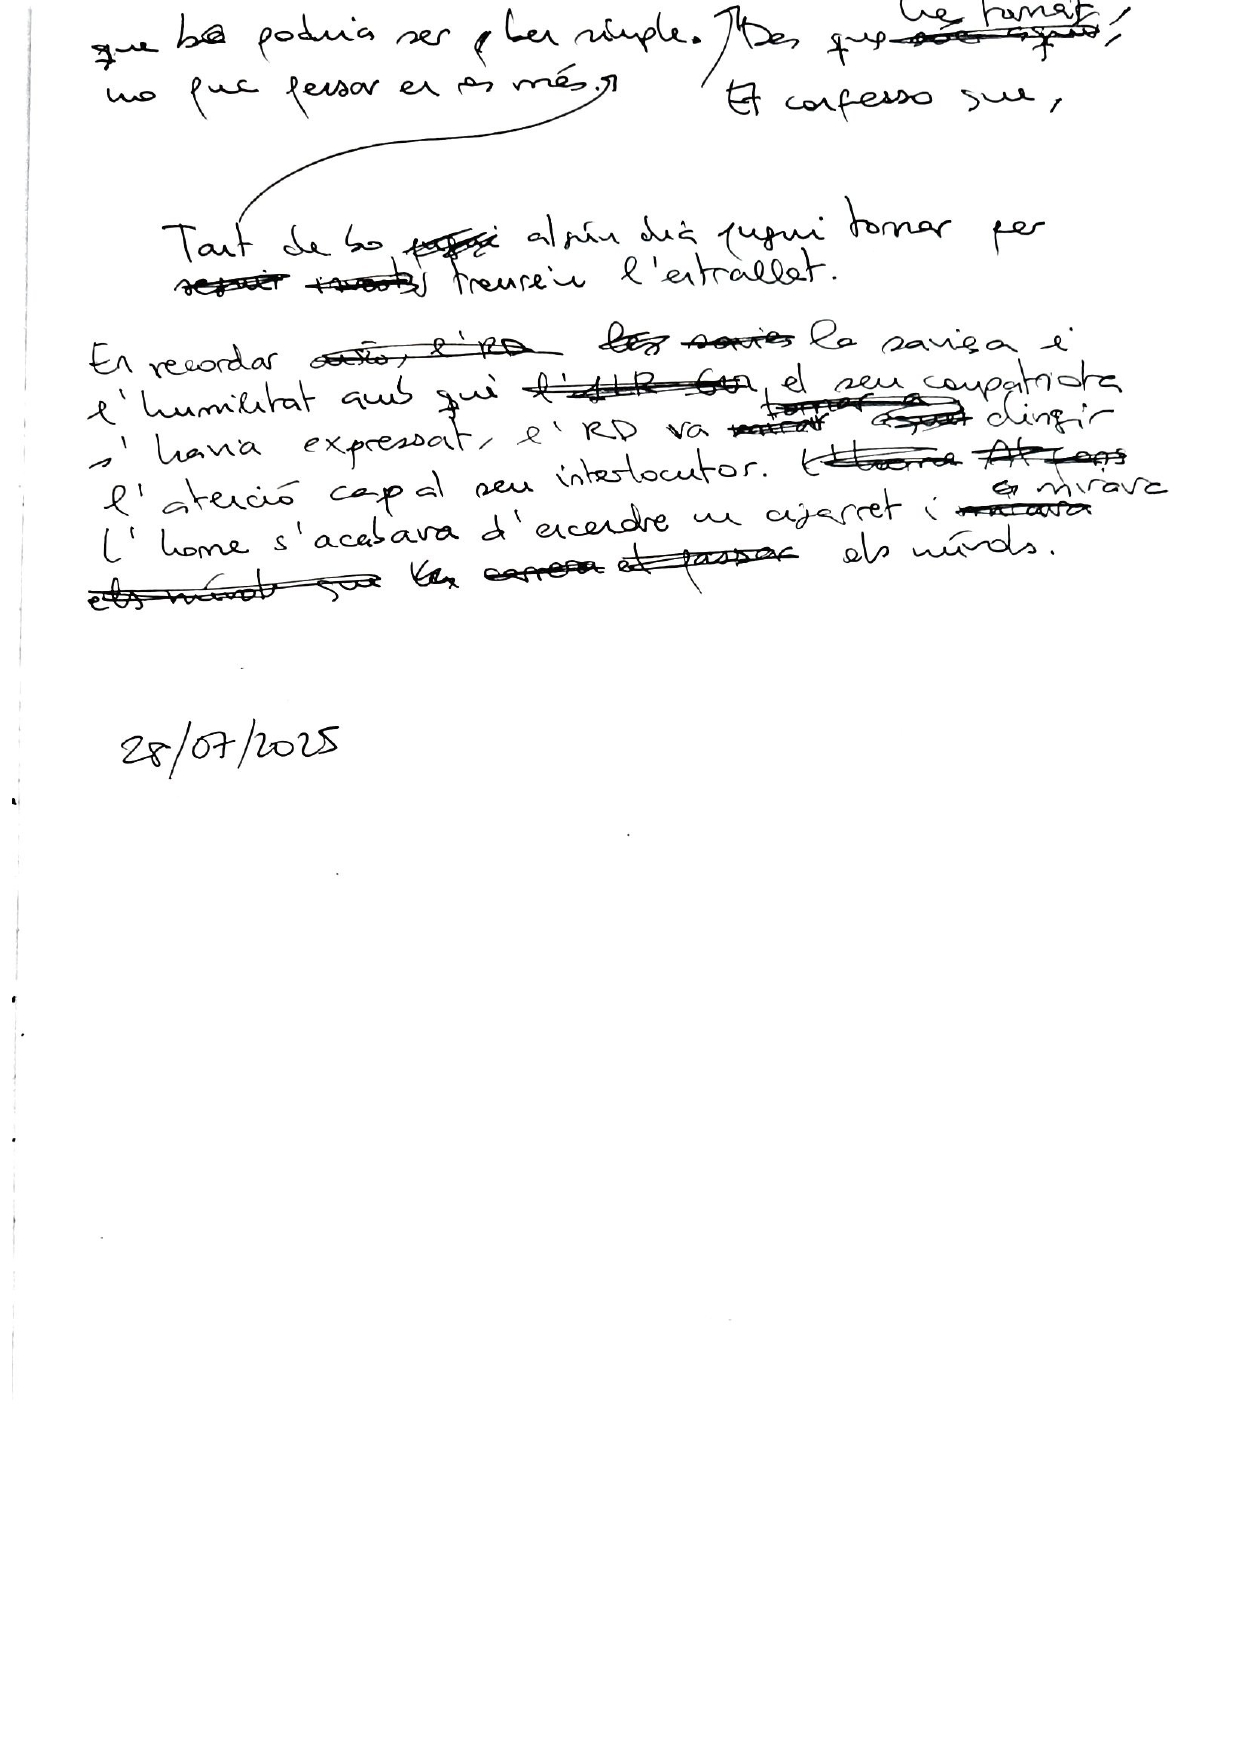 he tornat,
que bé podria ser ben simple. Des que
no puc pensar en res més.
Et confesso que,
Tant de bo algún dia pugui tornar per
treure'n l'entrallat.
En recordar la saviesa i
l'humilitat amb què el seu compatriota
s'havia expressat, l'RD va dirigir
l'atenció cap al seu interlocutor.
mirava
L'home s'acabava d'encendre un cigarret i
els núvols.
28/07/2025